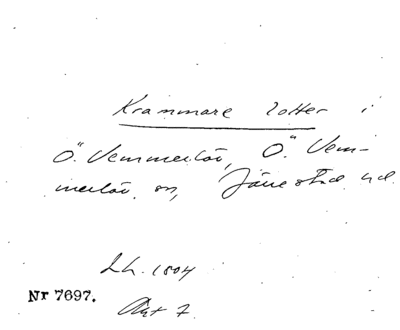 Krammare lotter i
Ö. Vemmerlöv, Ö. Vem-
merlöv sn, Järrestad hd.
Lh. 1804
Nr 7697.
Akt 7